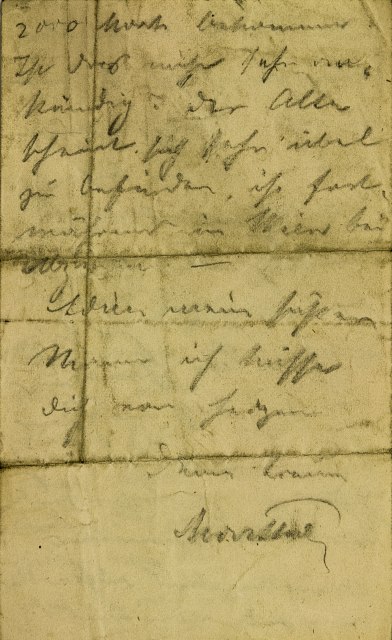 2000 Mark bekommen
Ist das nicht sehr an-
ständig? der Alte
scheint sich sehr übel
zu befinden, ist fort-
während in Wien bei
Adieu mein süßes
ich küsse
dich von Herzen
Deine